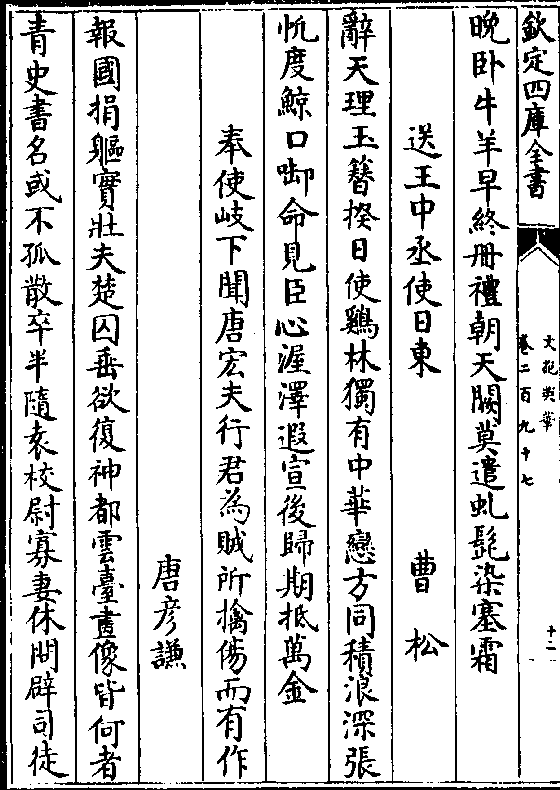 欽定四庫全書
文苑英華
卷二百九十七
十二
晩卧牛羊早終册禮朝天闕莫遣虬髭染塞霜
送王中丞使日東
曹松
辭天理玉簮揆日使鷄林獨有中華戀方同積浪深張
忼度鯨口啣命見臣心渥澤遐宣後歸期抵萬金
奉使岐下聞唐宏夫行君為賊所擒傷而有作
唐彦謙
報國捐軀實壯夫楚囚垂欲復神都雲臺畫像皆何者
青史書名或不孤散卒半隨袁校尉寡妻休問辟司徒